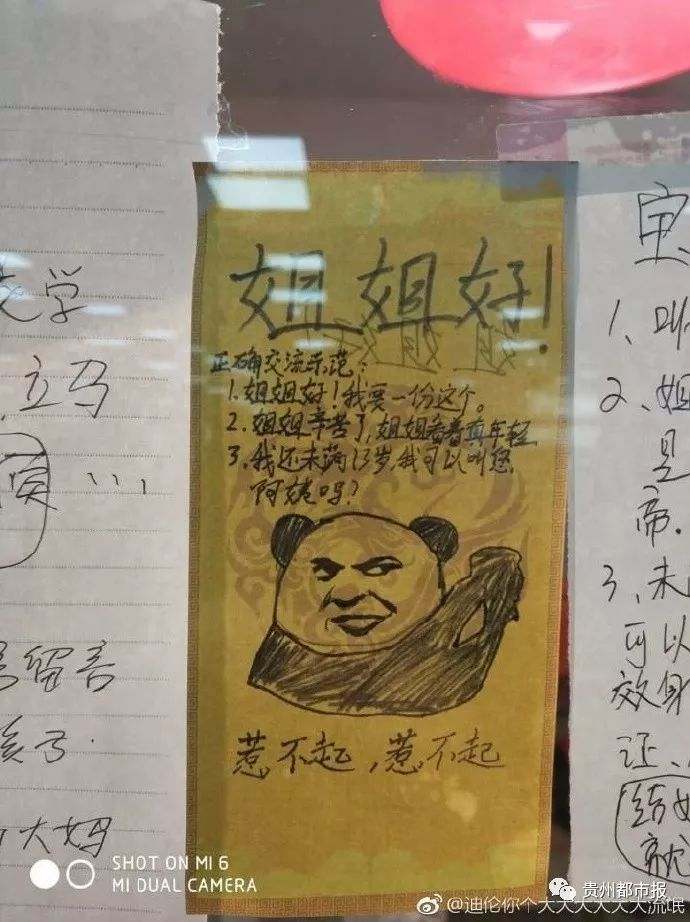 姐姐好!
正确交流示范:
1.姐姐好!我要一份这个。
2.姐姐辛苦了,姐姐看着真年轻
3.我还未满13岁,我可以叫您
阿姨吗?
惹不起,惹不起
学
立马
...
留言
孩子.
大妈
1、叫
2、姐
是
帝.
3、未
可以
效身
证、
结
就
SHOT ON MI 6
MI DUAL CAMERA
贵州都市报
@迪伦你个大大大大大大流氓